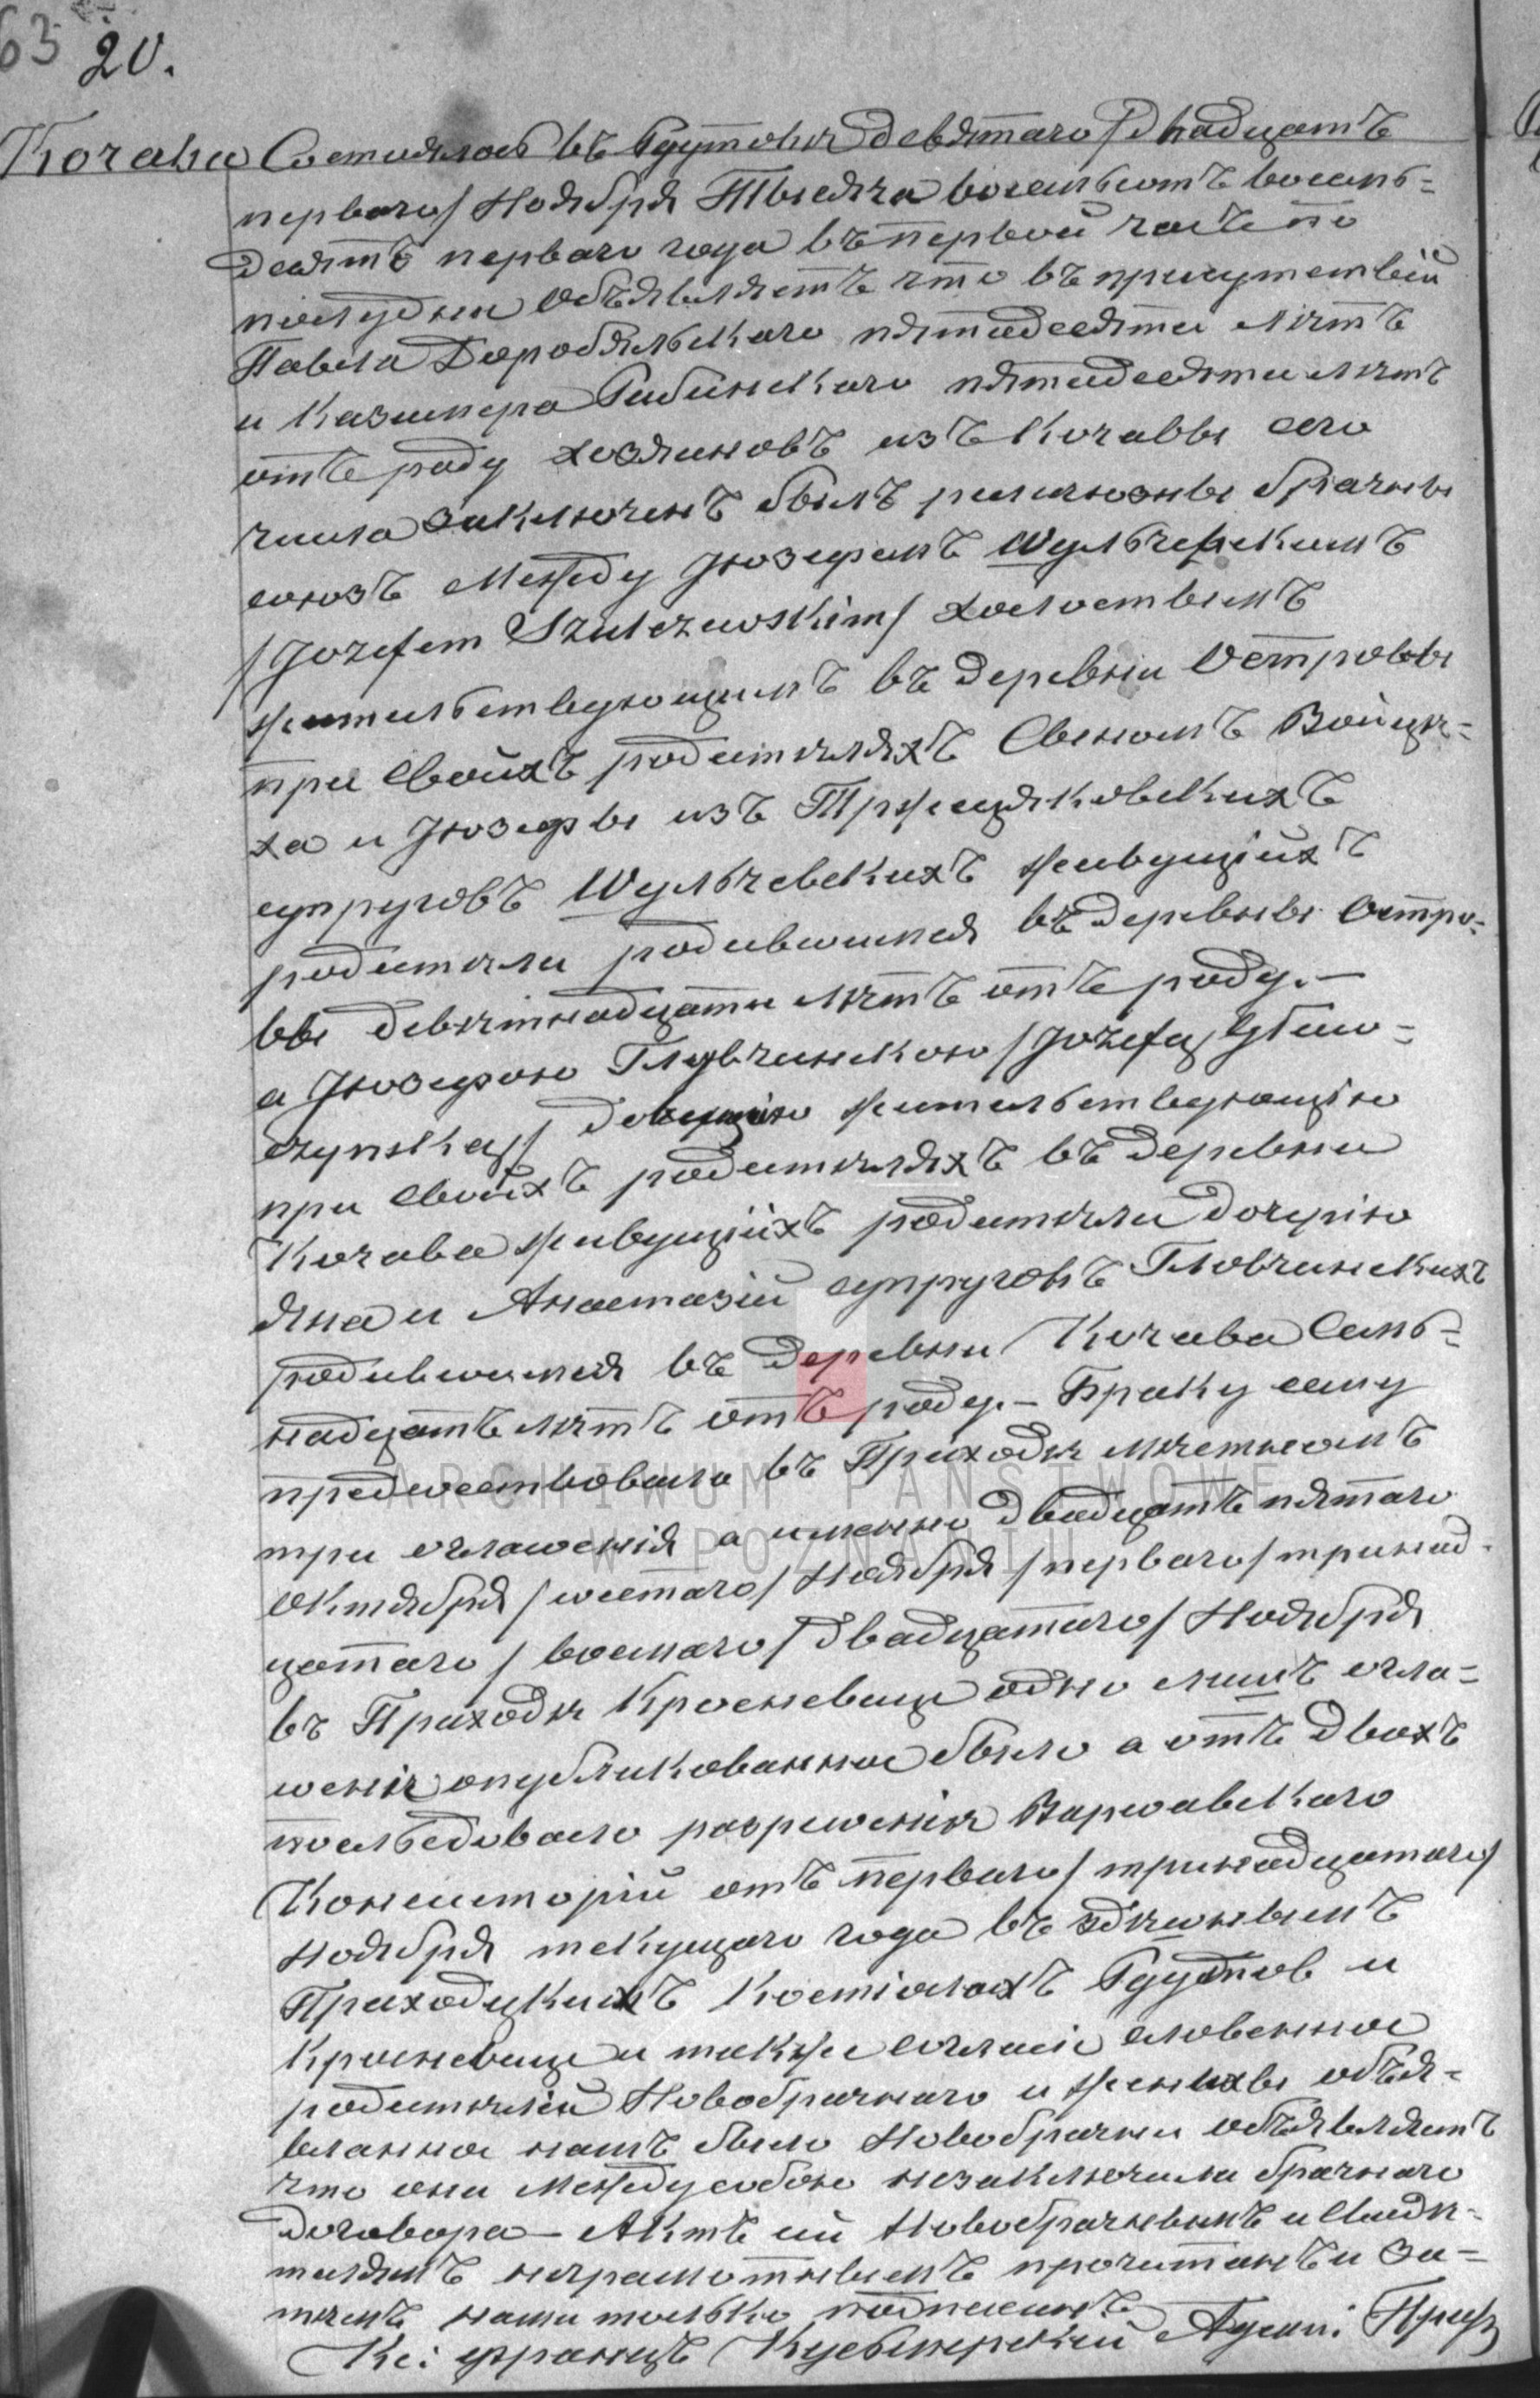 63 20.
Кочавы Состоялось въ Рдутовѣ девятаго / двадцать
перваго / Ноября Тысяча восемьсотъ восемь=
десятъ перваго года въ первой часъ по
полудни Объявляетъ что въ присутствій
Павла Доробяльскаго пятидесяти лѣтъ
и Казимера Рибинскаго пятидесяти лѣтъ
отъ роду хозяиновъ изъ Кочавы сего
числа заключенъ былъ религіозны брачны
союзъ Между Юозефемъ Шульчевскимъ
/ Jozefem Szulczewskim / холостымъ
жительствующимъ въ деревни Островы
при своихъ родителяхъ Сыномъ Войце=
ха и Юозефы изъ Тржецяковскихъ
супруговъ Шульчевскихъ живущійхъ
родители родившимся въ деревны Остро=
вы девятнадцати лѣтъ отъ роду. —
а Юозефою Гловчинскою / Jozefą Głow=
czynską / девицію жительствующію
при своихъ родителяхъ въ деревни
Кочава живущійхъ родители дочерію
Яна и Анастазій супруговъ Гловчинскихъ
родившимся въ деревни Кочава Семь=
надцать лѣтъ отъ роду. — Браку сему
предшествовало въ Приходѣ мѣстномъ
три оглашенія а именно двадцать пятаго
Октября / шестаго / Ноября / перваго / тринад=
цатаго / восмаго / двадцатаго / Ноября
въ Приходѣ Кросневице одно лишъ огла=
шеніе опубликованное было а отъ двохъ
послѣдовало разрешеніе Варшавскаго
Консисторій отъ перваго / тринадцатаго /
Ноября текущаго года въ здѣшнымъ
Приходцкихъ Костіолахъ Рдутов и
Кросневице и также согласіе словенное
родителей Новобрачнаго и женихы объя=
вланное намъ было Новобрачни объявляютъ
что они Между собою незаключили брачнаго
договора — Актъ сій Новобрачнымъ и Свидѣ=
телямъ неграмотнымъ прочитанъ и За=
тѣмъ нами только подписанъ
Кс: францъ Админ: Прих
ARCHIWUM PAŃSTWOWE
W POZNANIU